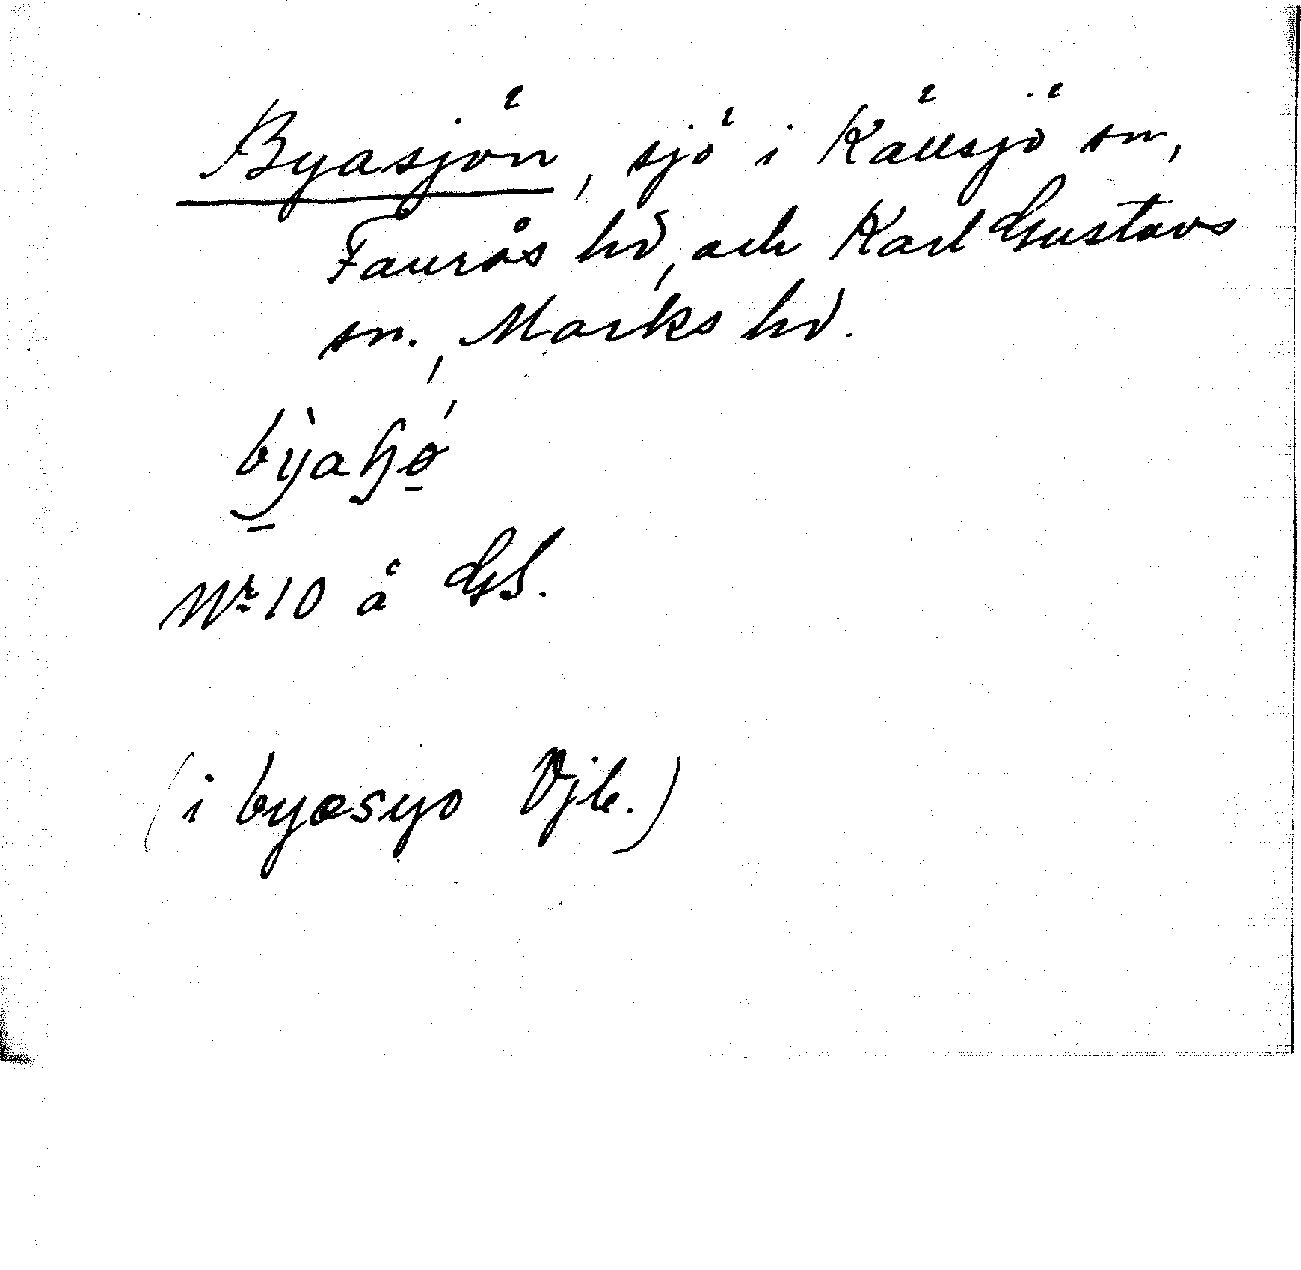 Byasjön, sjö i Källsjö sn,
Faurås hd, och Karl Gustavs
sn., Marks hd.
Nr 10 å GS.
(i byasyo Vjb.)